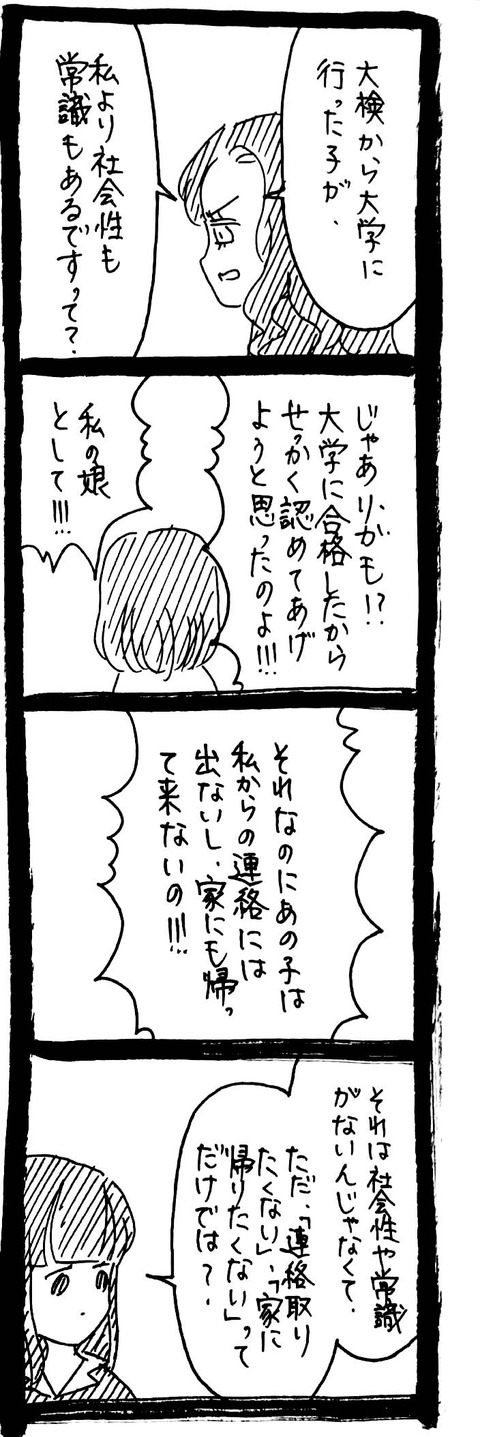 大検から大学に
行った子が、
私より社会性も
常識もあるですって？
じゃありがも！？
大学に合格したから
せっかく認めてあげ
ようと思ったのよ！！！
私の娘
として！！！
それなのにあの子は
私からの連絡には
出ないし、家にも帰っ
て来ないの！！！
それは社会性や常識
がないんじゃなくて、
ただ、「連絡取り
たくない」、「家に
帰りたくない」って
だけでは？